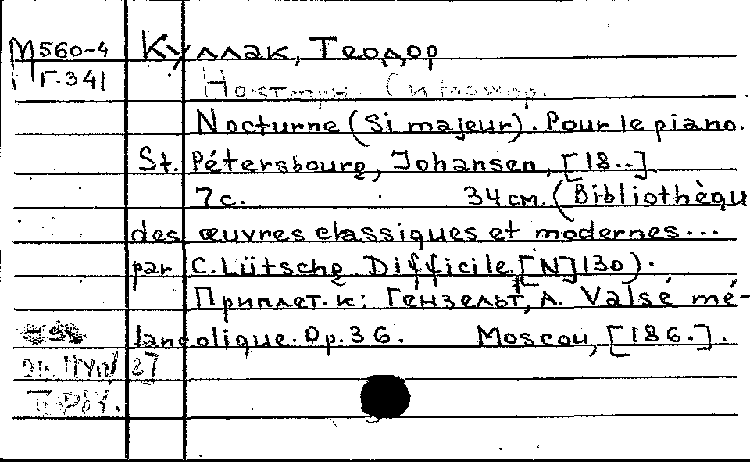 М560-4 Куллак, Теодор
Г-341
Nocturne (Si majeur). Pour le piano.
St. Pétersbourg, Johansen, [18..]
7с. 34см. (Bibliothèqu
des œuvres classiques et modernes...
par C. Lütschg. Difficile. [N] 130).
Приплет. к: Гензельт, А. Valse mé-
lancolique. Op. 36. Moscou, [186.].
27